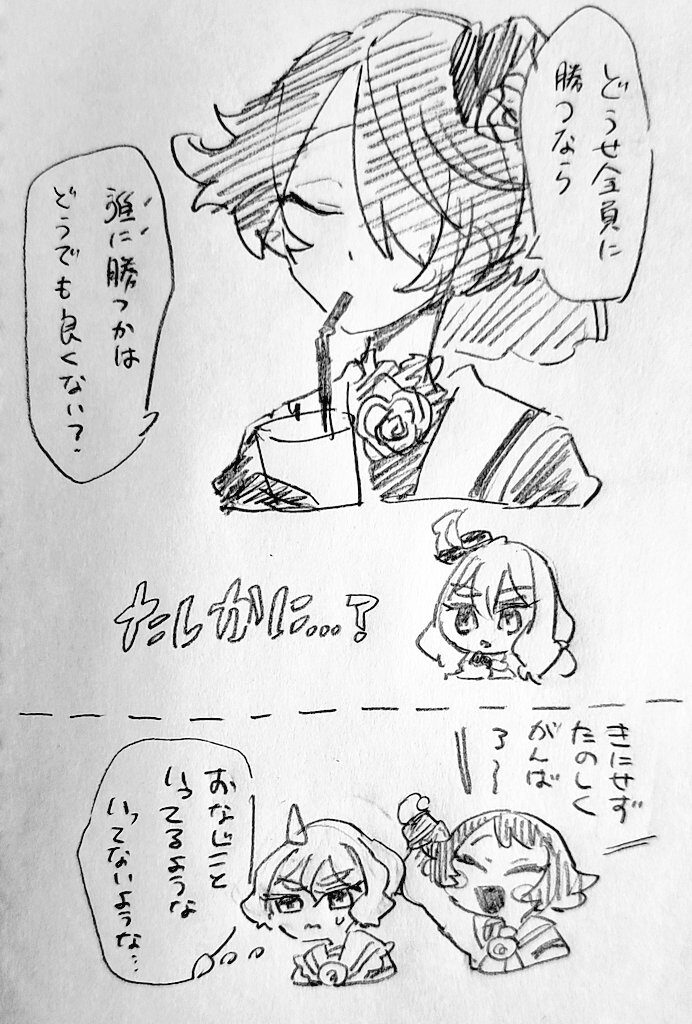 どうせ全員に
勝つなら
誰に勝つかは
どうでも良くない?
たしかに…?
きにせず
たのしく
がんば
ろ〜
おなじこと
いってるような
いてないような…